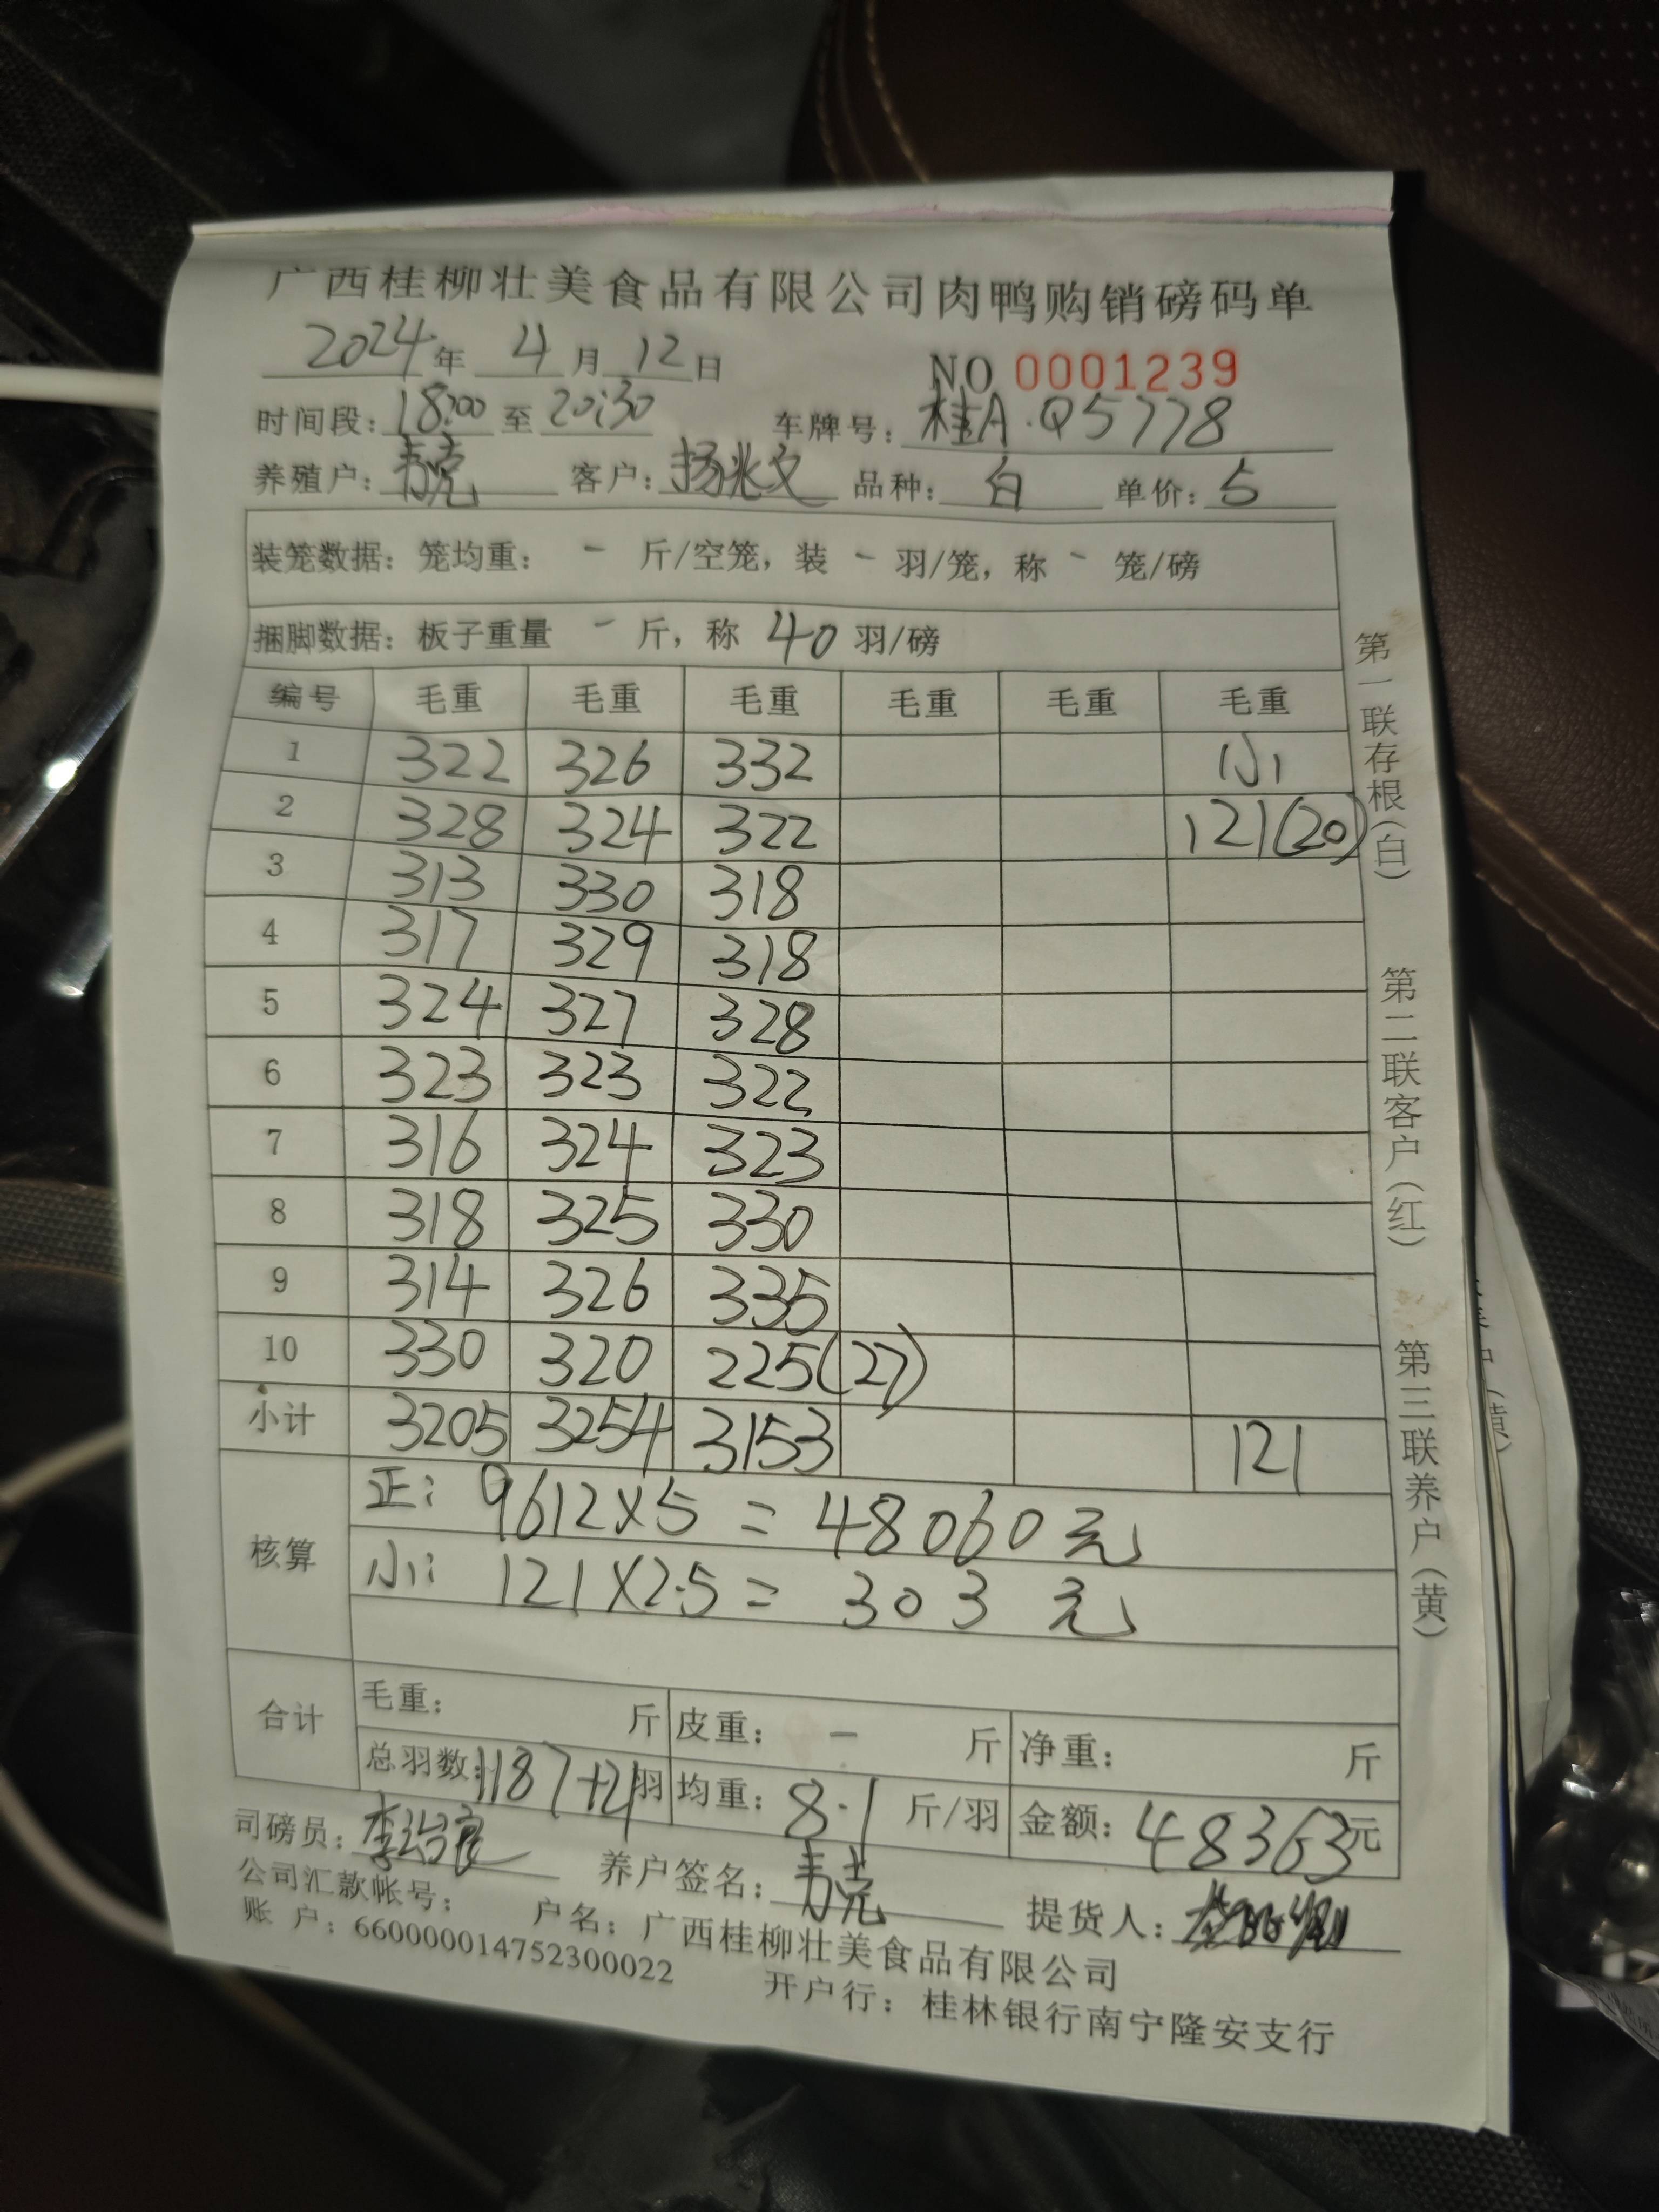 广西桂柳壮美食品有限公司肉鸭购销磅码单
2024年 4月12日
NO 0001239
时间段:18:00至20:30 车牌号:桂A·Q5778
养殖户:韦亮 客户:杨兆文 品种:白 单价:5
装笼数据:笼均重: - 斤/空笼,装 - 羽/笼,称 - 笼/磅
捆脚数据:板子重量 - 斤,称 40 羽/磅
编号 毛重 毛重 毛重 毛重 毛重 毛重
1 322 326 332 小
2 328 324 322 121(20)
3 313 330 318
4 317 329 318
5 324 327 328
6 323 323 322
7 316 324 323
8 318 325 330
9 314 326 335
10 330 320 225(27)
小计 3205 3254 3153 121
核算
正: 9612×5=48060元
小: 121×2.5=303元
合计
毛重: 斤 皮重: - 斤 净重: 斤
总羽数:1187+21羽 均重:8.1斤/羽 金额:48363元
司磅员:李治良 养户签名:韦亮 提货人:
公司汇款帐号: 户名:广西桂柳壮美食品有限公司
账 户:660000014752300022 开户行:桂林银行南宁隆安支行
第一联存根(白) 第二联客户(红) 第三联养户(黄)